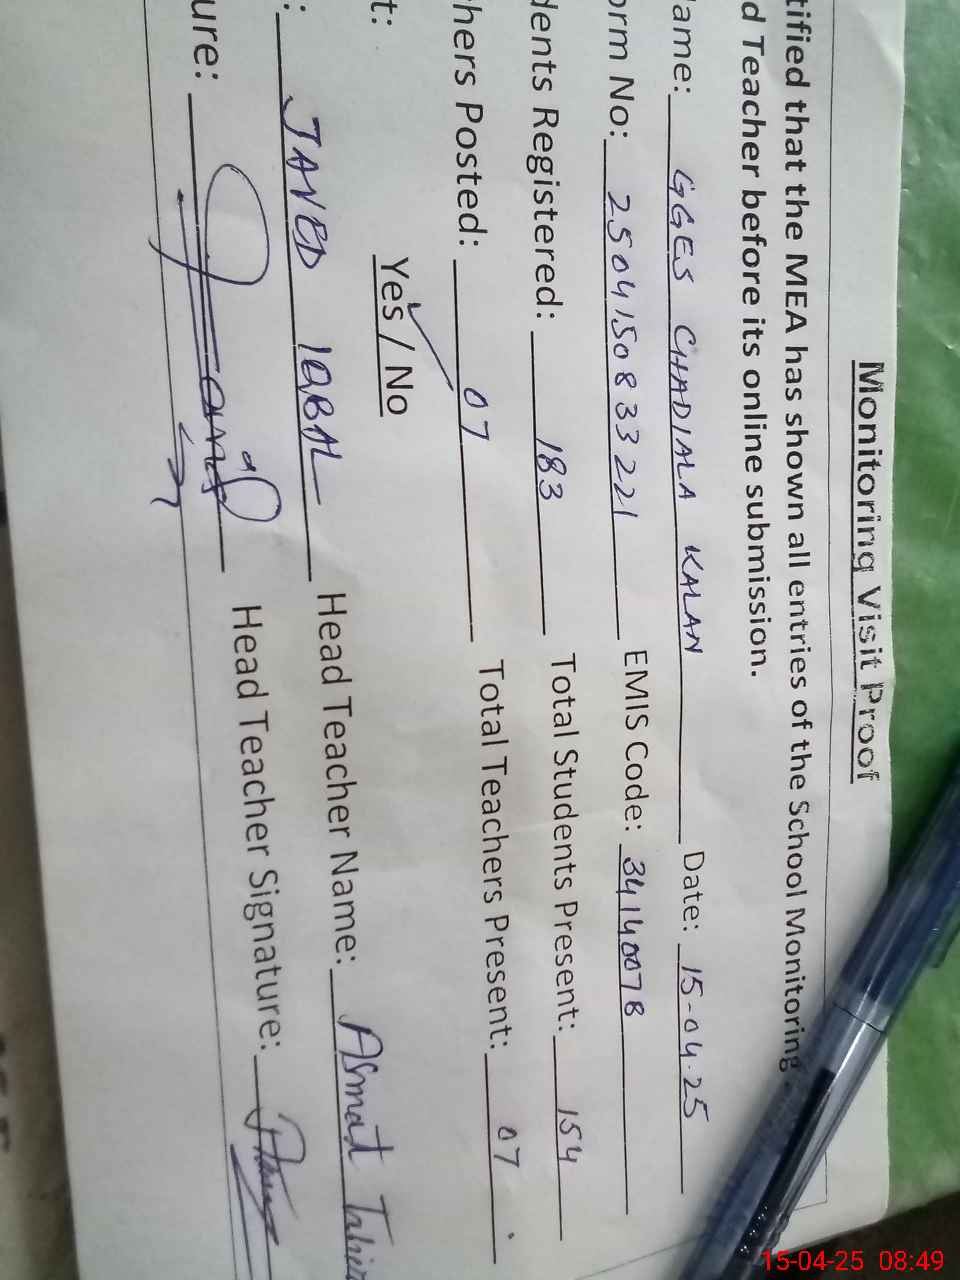 Monitoring Visit Proof
tified that the MEA has shown all entries of the School Monitoring
d Teacher before its online submission.
ame: GGES CHADIALA KALAN Date: 15-04-25
orm No: 2504150833221 EMIS Code: 34140078
dents Registered: 183 Total Students Present: 154
hers Posted: 07 Total Teachers Present: 07
t: Yes / No
: JAVED IQBAL Head Teacher Name: Asmat Tahir
ure: Head Teacher Signature:
15-04-25 08:49